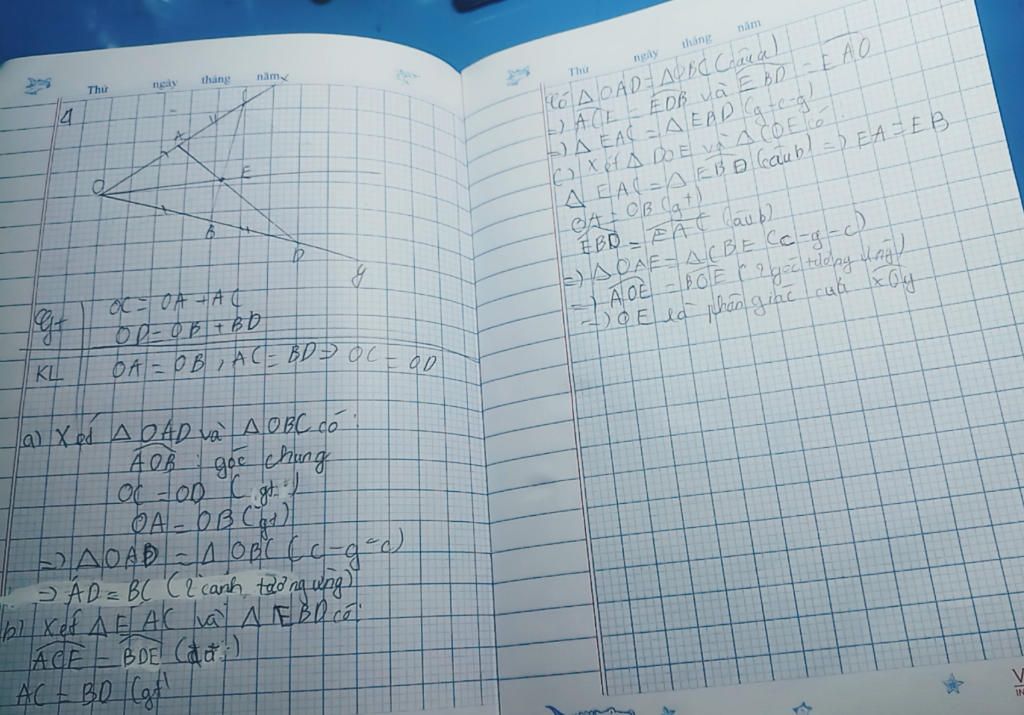 Thứ ngày tháng năm
4
x
C
A
E
O
B
D
y
gt OC = OA + AC
OD = OB + BD
KL OA = OB, AC = BD => OC = OD
a) Xét △OAD và △OBC có:
AOB: góc chung
OC = OD (gt)
OA = OB (gt)
=> △OAD = △OBC (c-g-c)
=> AD = BC (2 cạnh tương ứng)
b) Xét △EAC và △EBD có:
ACE = BDE
AC = BD (gt)
Thứ ngày tháng năm
Có △OAD = △OBC (câu a)
=) ACE = EDB và EBD = EAO
=) △EAC = △EBD (g-c-g)
c) Xét △DOE và △COE có:
△EAC = △EBD (câu b) => EA = EB
OA = OB (gt)
EBD = EAC (câu b)
=) △OAE = △CBE (c-g-c)
=) AOE = BOE (2 góc tương ứng)
=) OE là phân giác của xOy